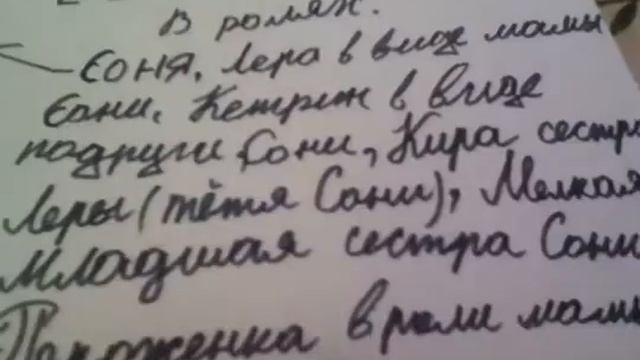 В ролях:
Соня, Лера в виде мамы
Сони, Кетрин в виде
подруги Сони, Кира сестра
Леры (тётя Сони), Мелкая
младшая сестра Сони
в роли мамы